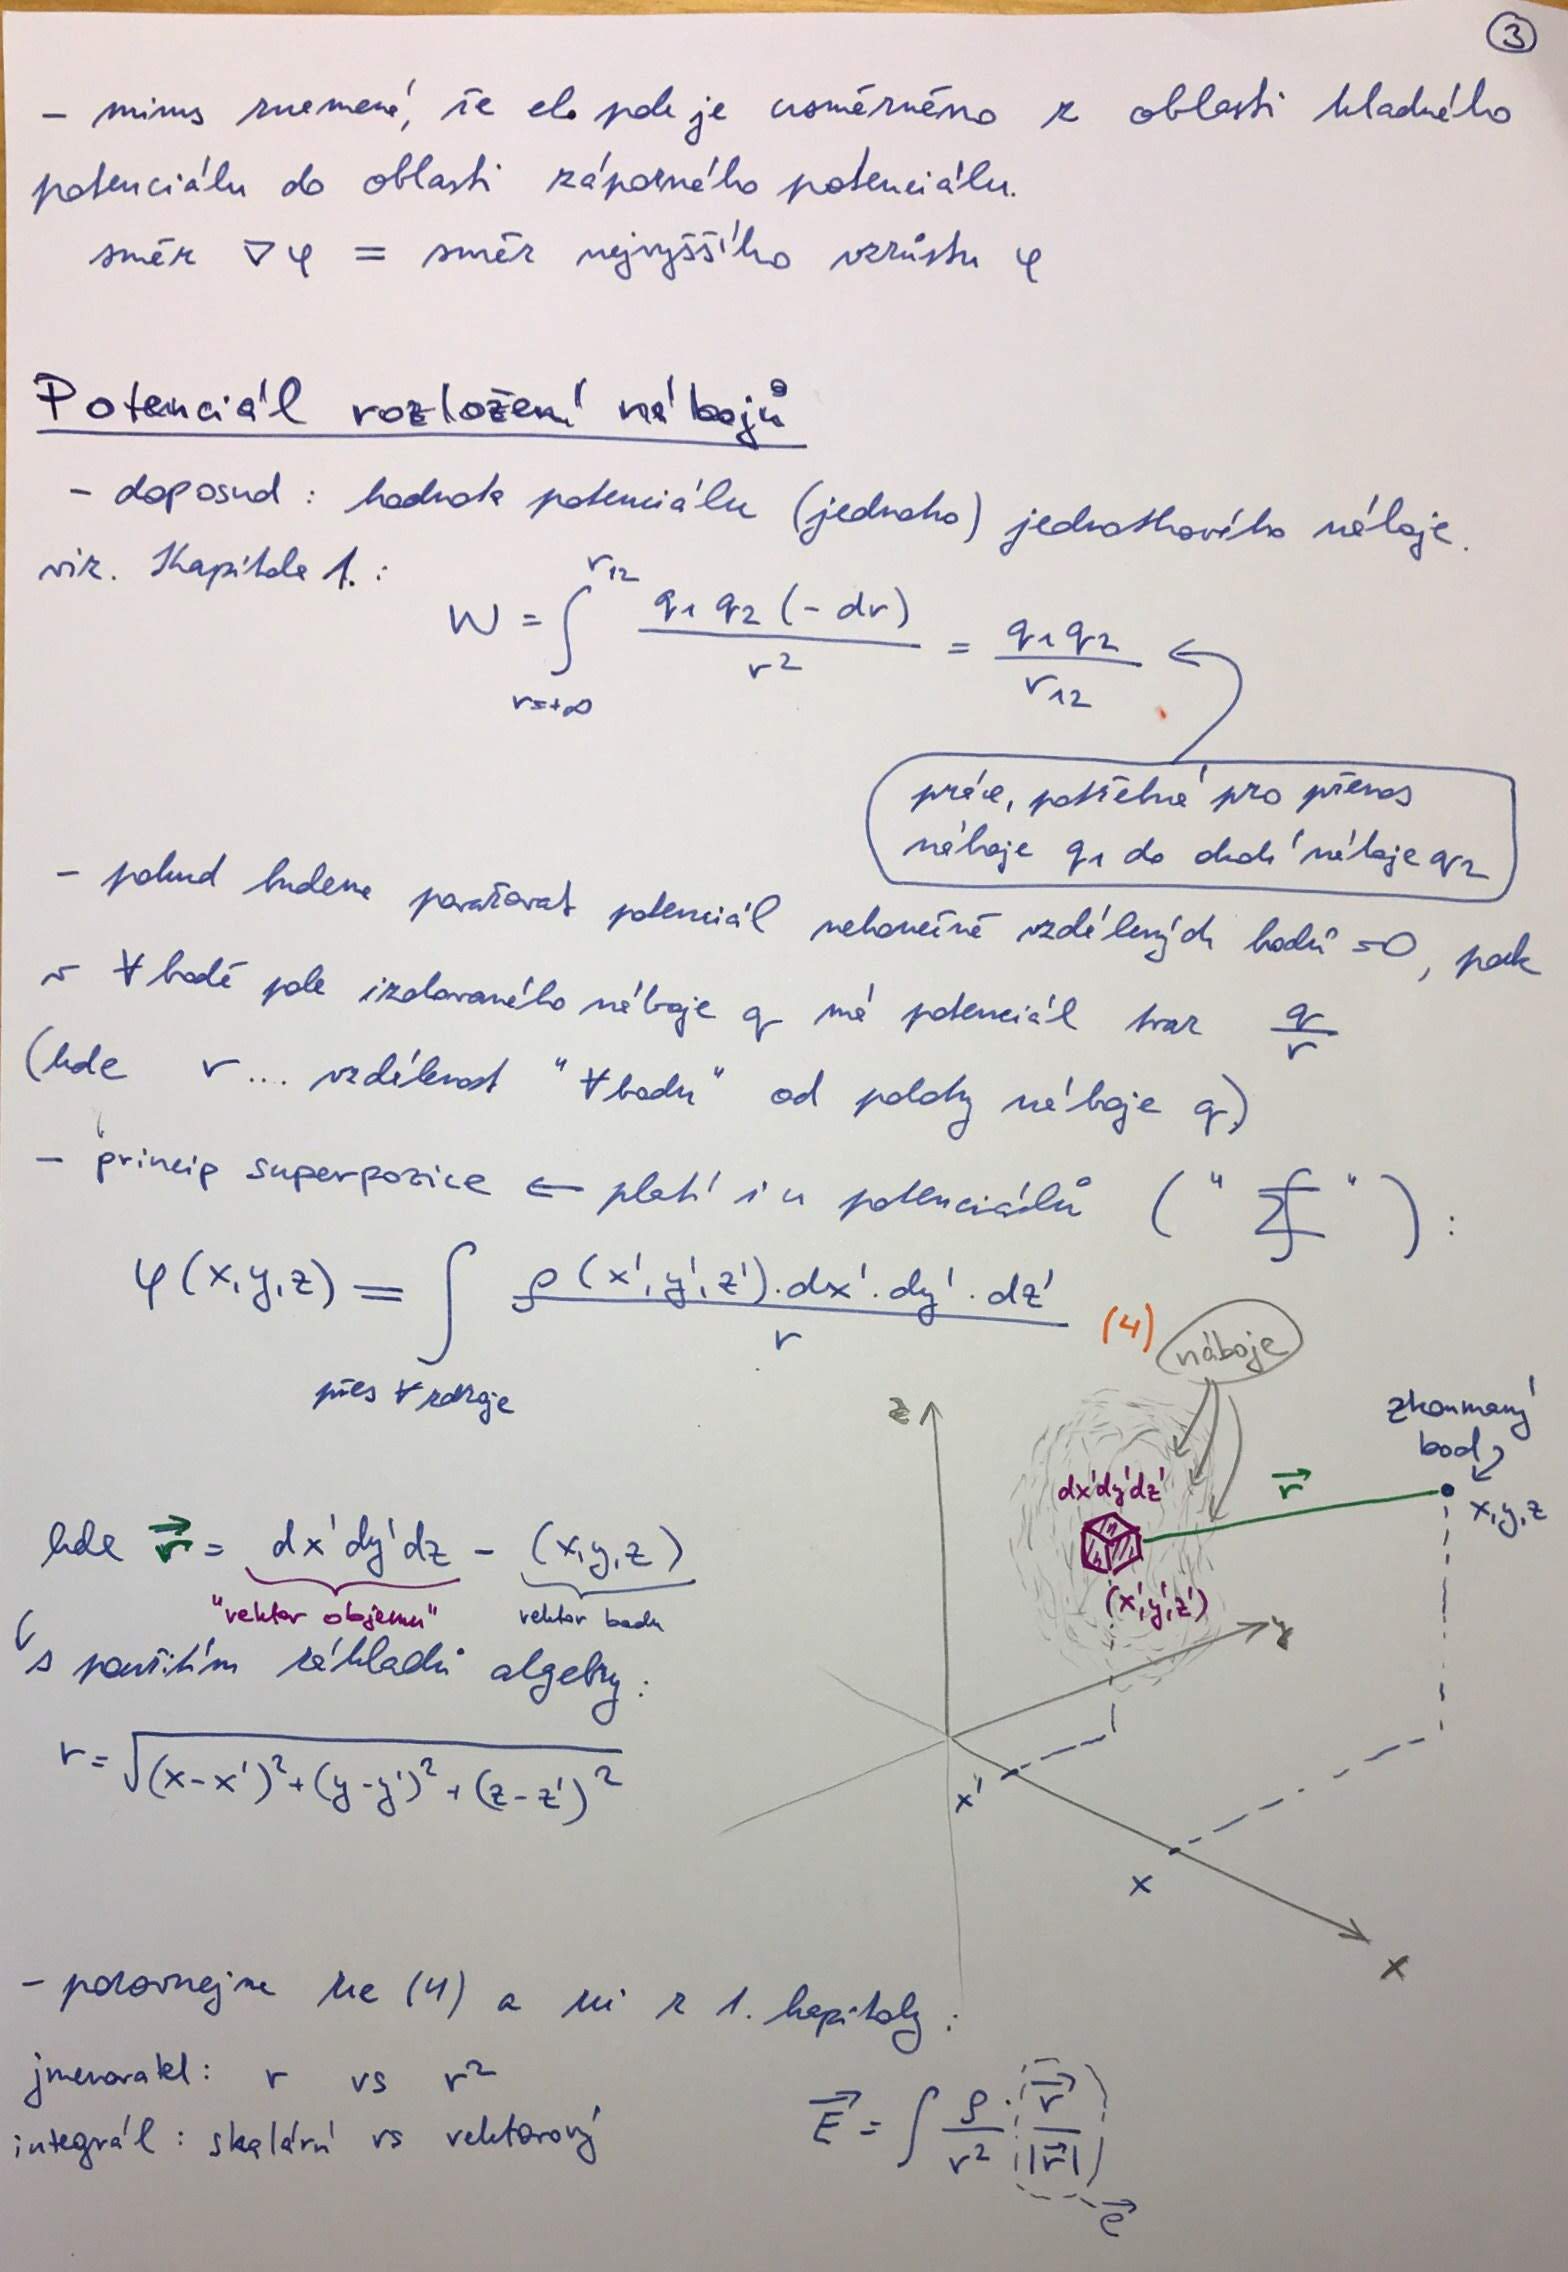 3
- minus znamená, že el. pole je usměrněno z oblasti kladného
potenciálu do oblasti záporného potenciálu.
směr ∇φ = směr nejvyššího vzrůstu φ
Potenciál rozložení nábojů
- doposud : hodnota potenciálu (jednoho) jednotkového náboje.
viz. Kapitola 1. :
W = ∫_{r=+∞}^{r12} q1 q2 (-dr) / r² = q1 q2 / r12
práce, potřebná pro přenos
náboje q1 do okolí náboje q2
- pokud budeme považovat potenciál nekonečně vzdálených bodů =0, pak
v ∀ bodě pole izolovaného náboje q má potenciál tvar q/r
(kde r .... vzdálenost "∀ bodu" od polohy náboje q)
- princip superpozice ← platí i u potenciálů ( " ∑∫ " ) :
φ(x,y,z) = ∫ ρ(x',y',z').dx'.dy'.dz' / r (4)
přes ∀ zdroje
náboje
z
zkoumaný
bod
dx'dy'dz'
r⃗
x,y,z
kde r⃗ = dx'dy'dz - (x,y,z)
"vektor objemu" vektor bodu
(x',y',z')
y
s použitím základů algebry :
r = √((x-x')²+(y-y')²+(z-z')²)
x'
x
x
- porovnejme (4) a z 1. kapitoly :
jmenovatel : r vs r²
integrál : skalární vs vektorový
E⃗ = ∫ ρ/r² · r⃗/|r⃗|
e⃗